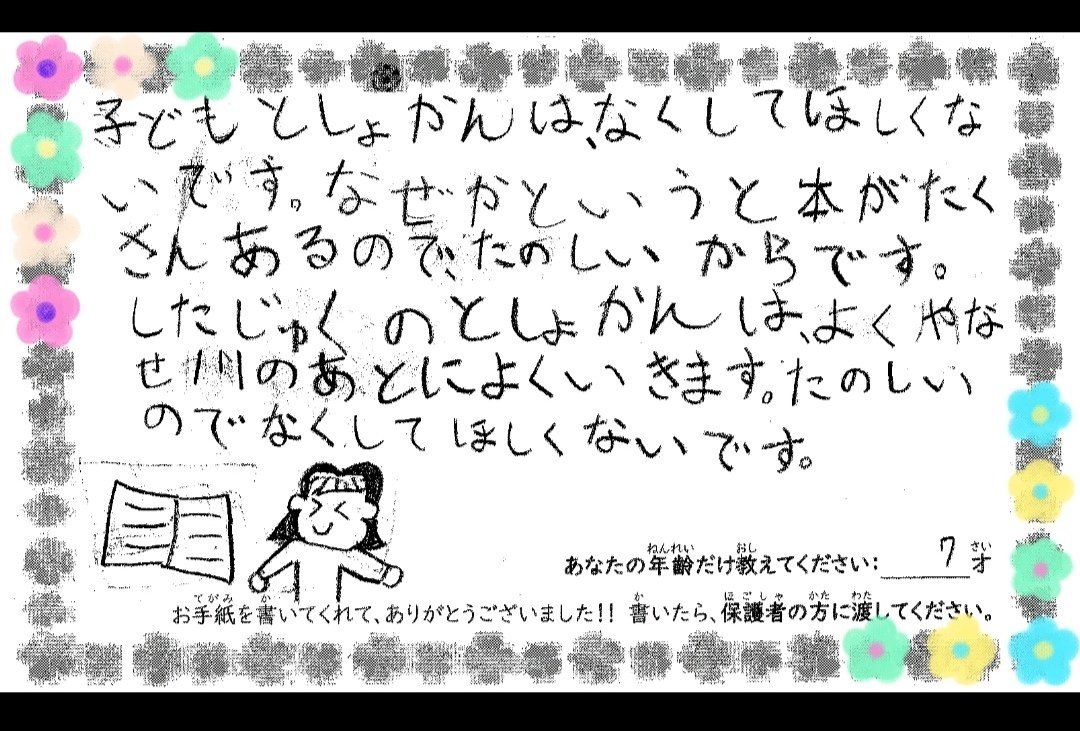 子どもとしょかんは、なくしてほしくな
いです。なぜかというと本がたく
さんあるので、たのしいからです。
したじゅくのとしょかんは、よくやな
せ川のあとによくいきます。たのしい
のでなくしてほしくないです。
あなたの年齢だけ教えてください:7才
お手紙を書いてくれて、ありがとうございました!! 書いたら、保護者の方に渡してください。